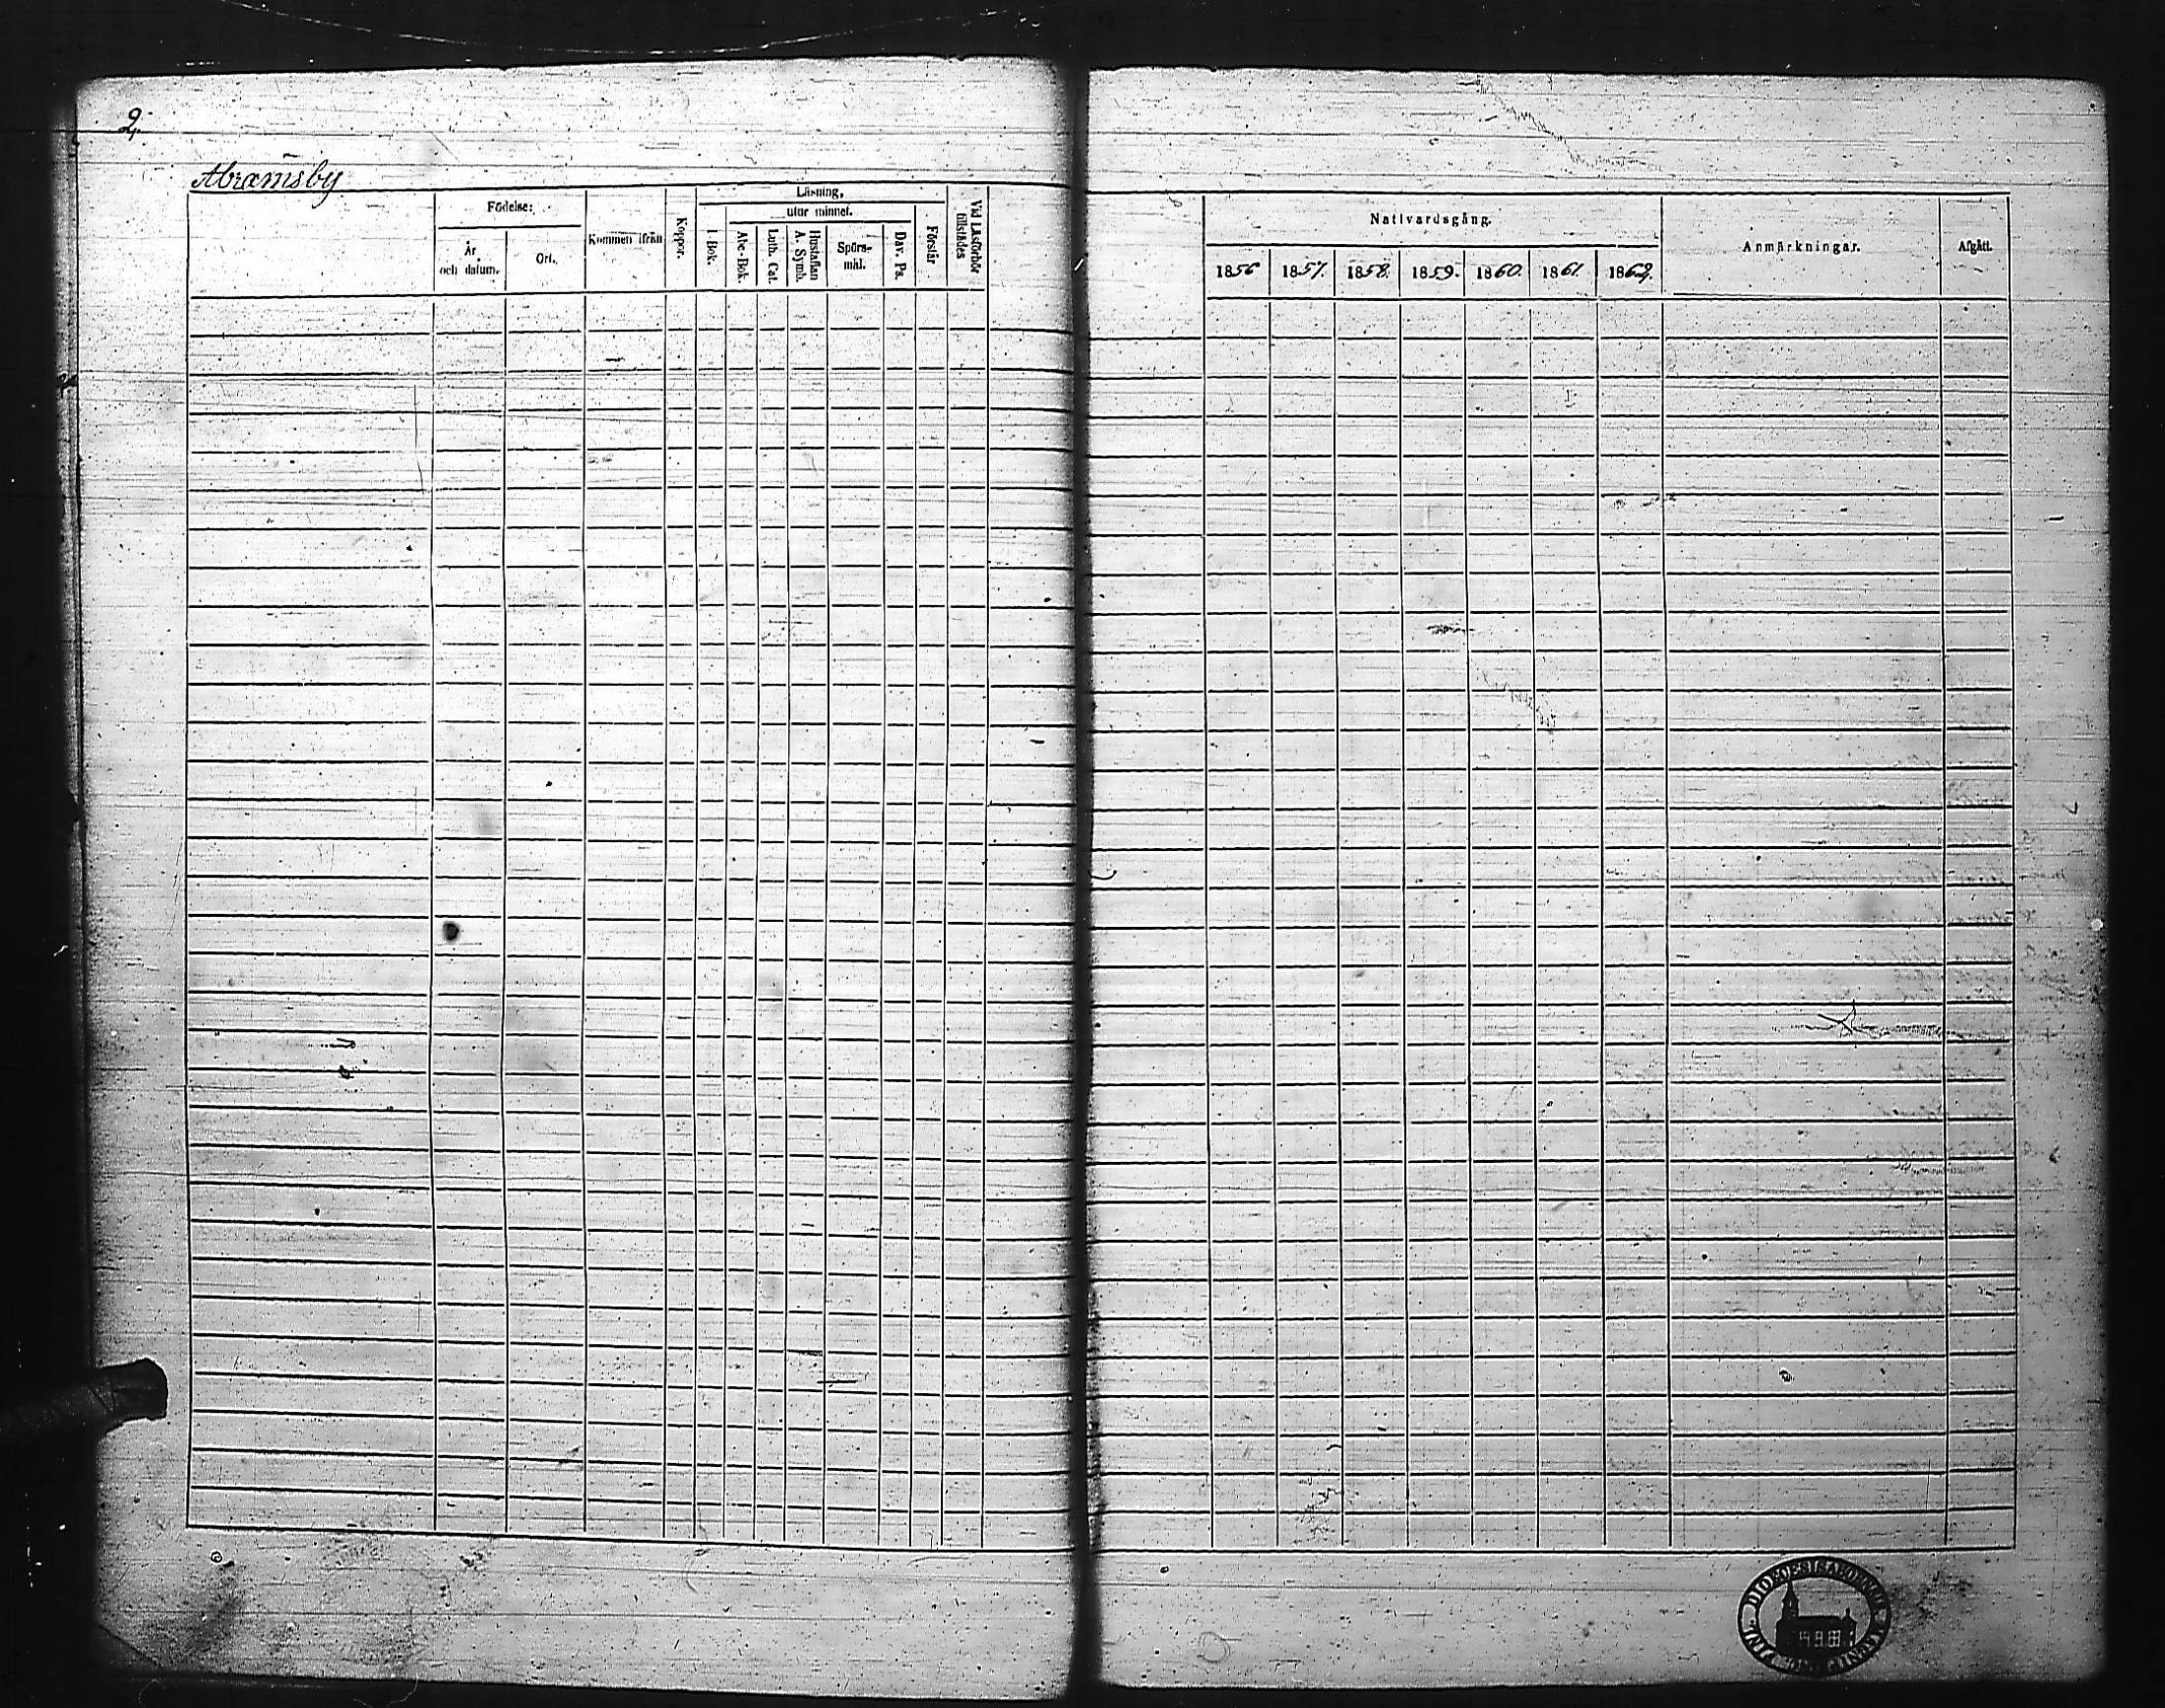 2.
Abramsby
Födelse:
År
och datum.
Ort.
Kommen ifrån
Koppor.
Läsning,
utur minnet.
I Bok.
Abc-Bok.
Luth. Cat.
Hustaflan
A. Symb.
Spörs-
mål.
Dav. Ps.
Förstår
Vid Läsförhör
tillstädes
Nattvardsgång.
1856
1857.
1858.
1859.
1860.
1861.
1862.
Anmärkningar.
Afgått.